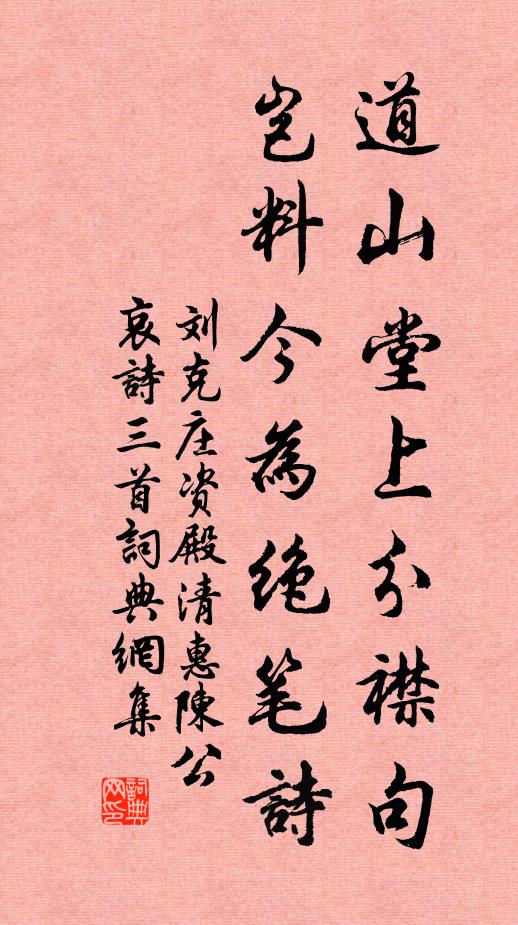 道山堂上分襟句
岂料今為绝笔詩
刘克庄资殿清惠陳公
哀詩三首詞典網集
詞典网印